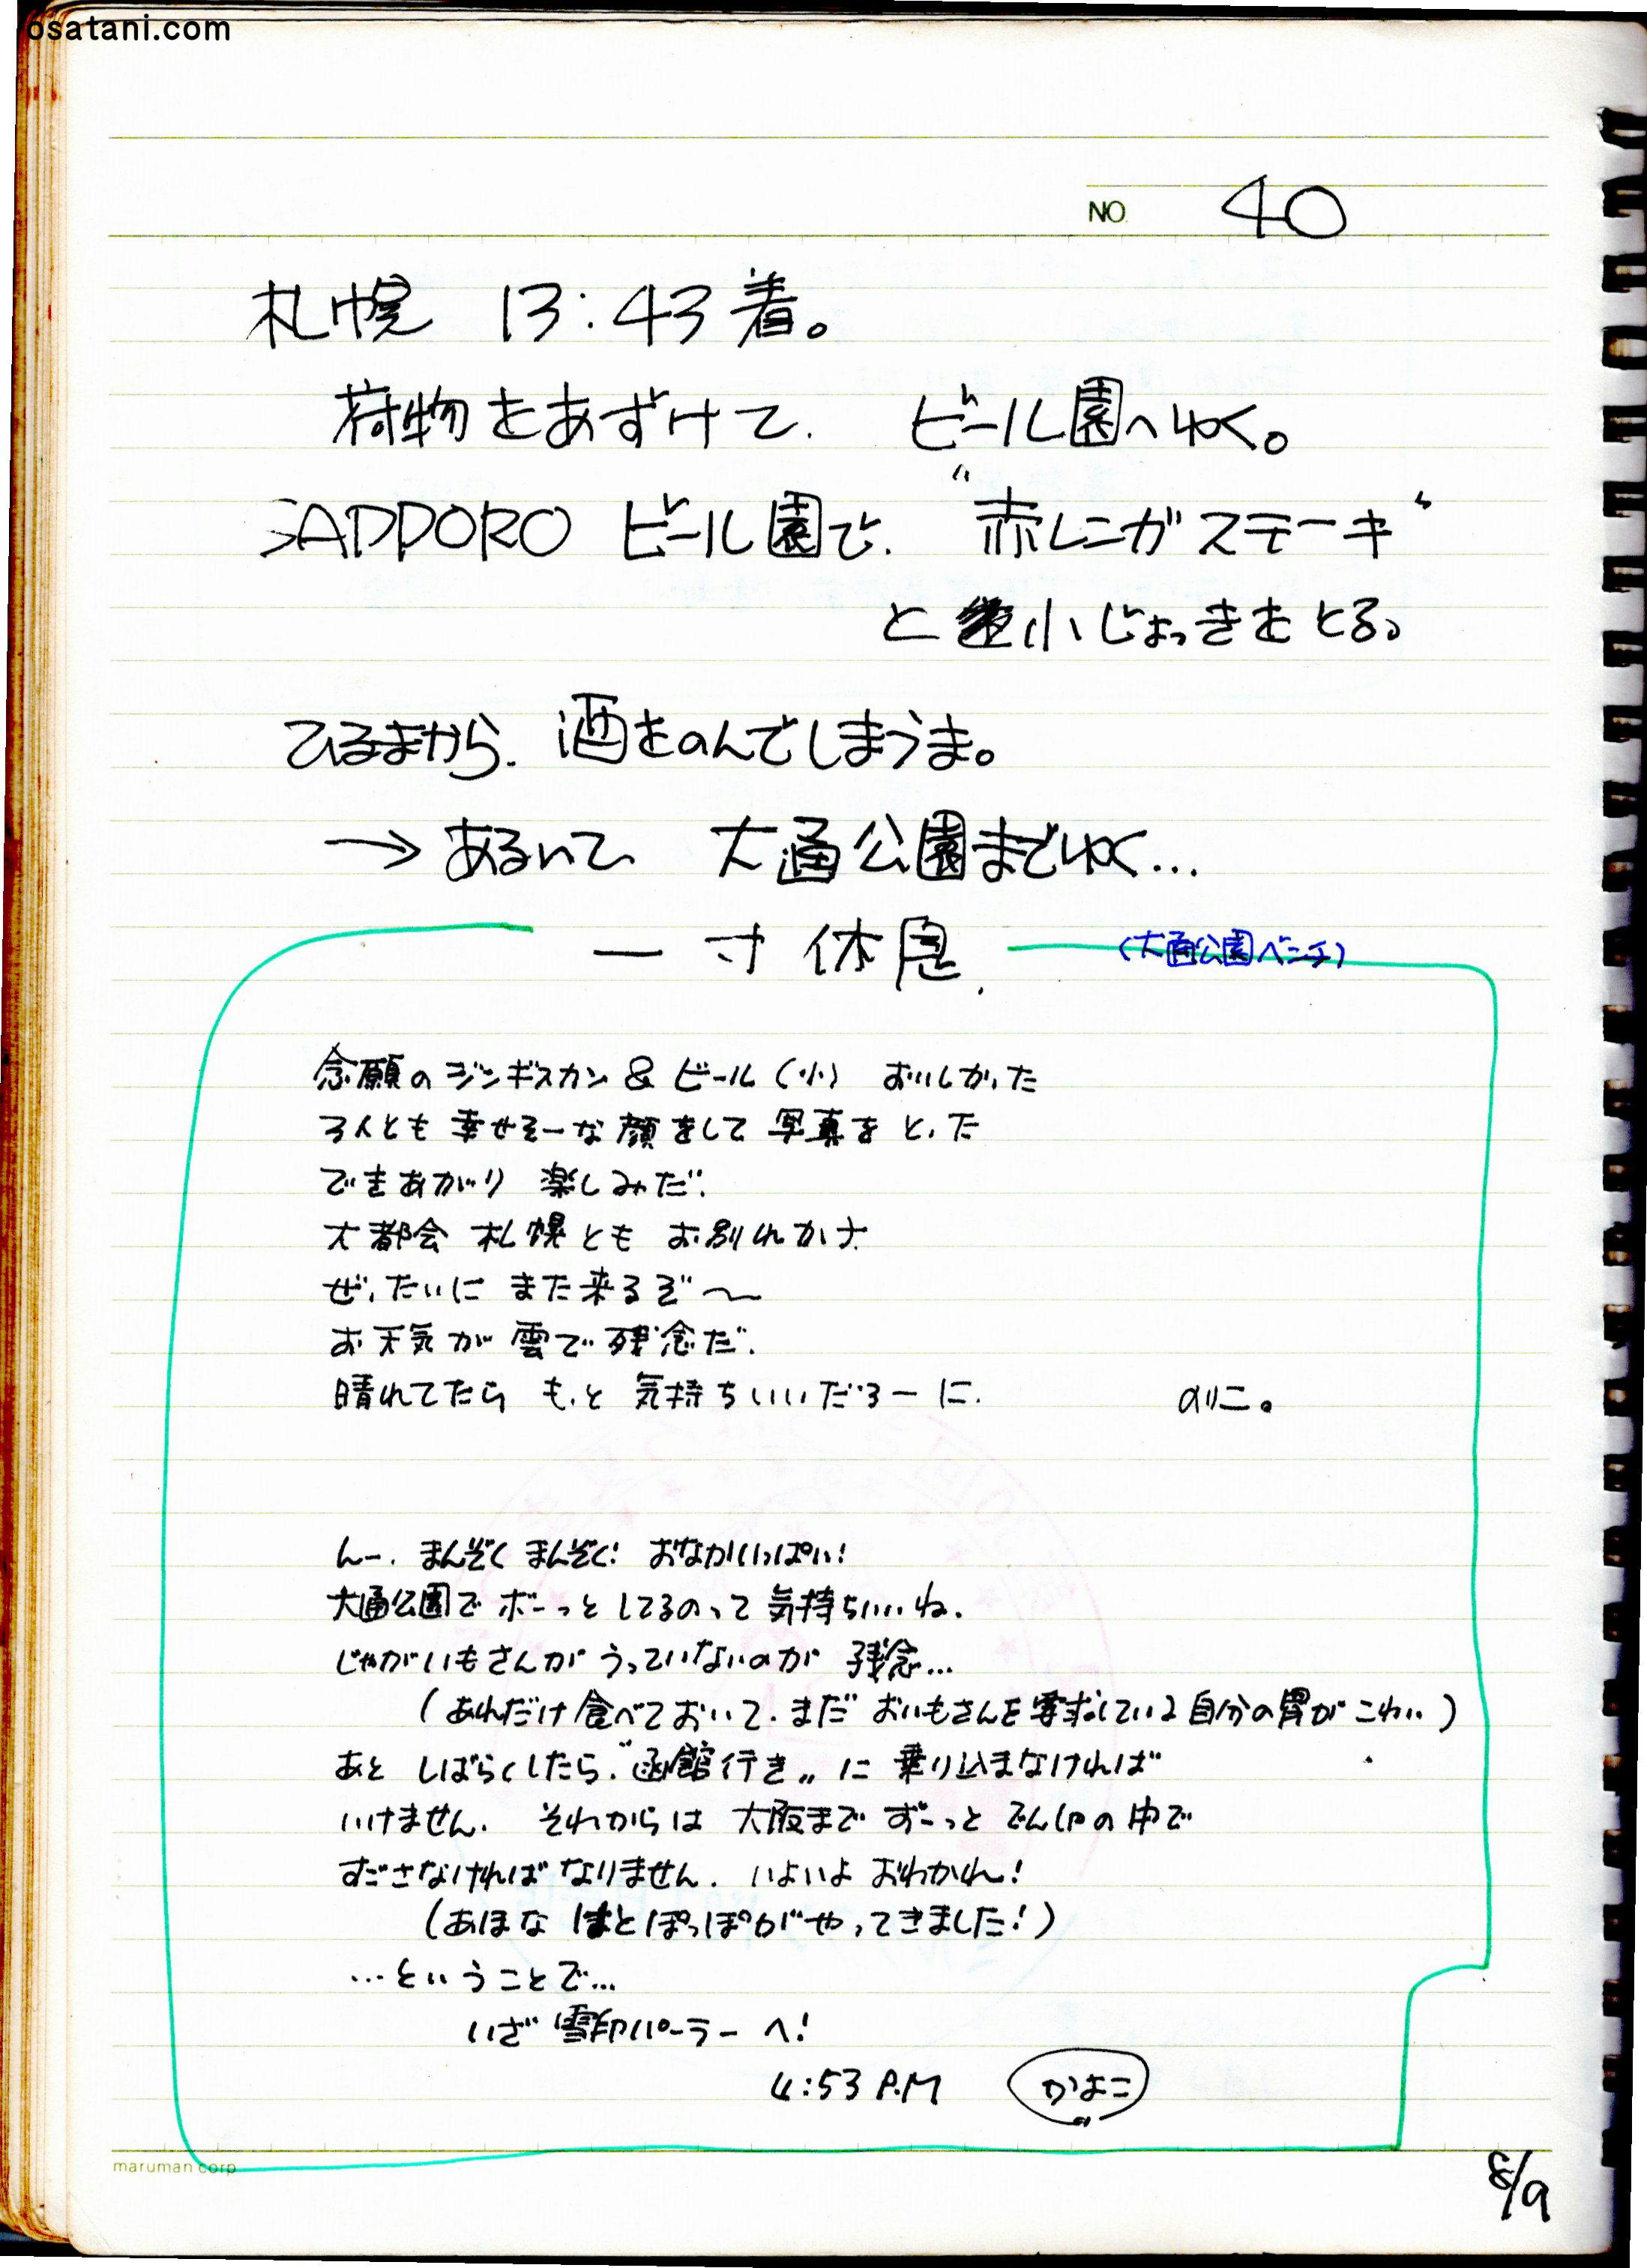 osatani.com
NO. 40
札幌 13:43着。
荷物をあずけて. ビール園へゆく。
SAPPORO ビール園で. “赤レンガステーキ”
と小じょっきをとる。
ひるまから. 酒をのんでしまうま。
→あるいて 大通公園までゆく...
一寸休息. (大通公園ベンチ)
念願のジンギスカン & ビール(小) おいしかった
3人とも 幸せそーな顔をして 写真をとった
できあがり 楽しみだ.
大都会 札幌とも お別れかナ
ぜったいに また来るぞ〜
お天気が 雲で残念だ.
晴れてたら もっと 気持ちいいだろーに. のりこ。
んー. まんぞく まんぞく! おなかいっぱい!
大通公園でボーっとしてるのって気持ちいいね.
じゃがいもさんが うっていないのが 残念...
(あれだけ食べておいて. まだ おいもさんを要求している自分の胃がこわい)
あと しばらくしたら. “函館行き„ に 乗り込まなければ
いけません. それからは 大阪まで ずーっと でんしゃの中で
すごさなければなりません. いよいよ おわかれ!
(あほな はとぽっぽがやってきました!)
...ということで...
いざ 雪印パーラーへ!
4:53 P.M かよこ
maruman corp
8/9